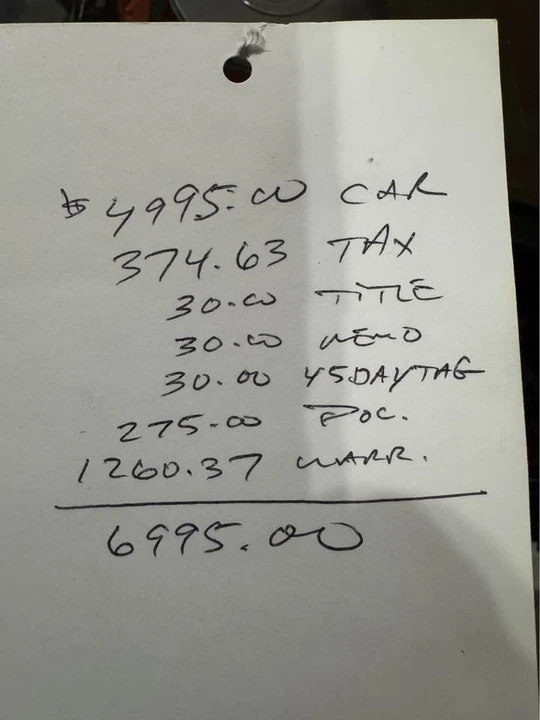 $4995.00 CAR
374.63 TAX
30.00 TITLE
30.00 MEMO
30.00 45DAYTAG
275.00 DOC.
1260.37 WARR.
6995.00